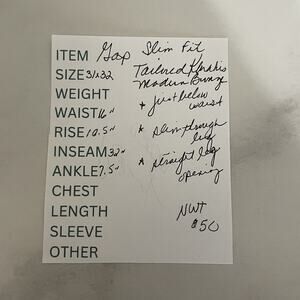 ITEM Gap Slim Fit
SIZE 31x32 Tailored Khakis
Modern Bronze
WEIGHT * just below
WAIST 16" waist
RISE 10.5" * slim through
leg
INSEAM 32"
* straight leg
ANKLE 7.5" opening
CHEST
LENGTH NWT
SLEEVE $50
OTHER